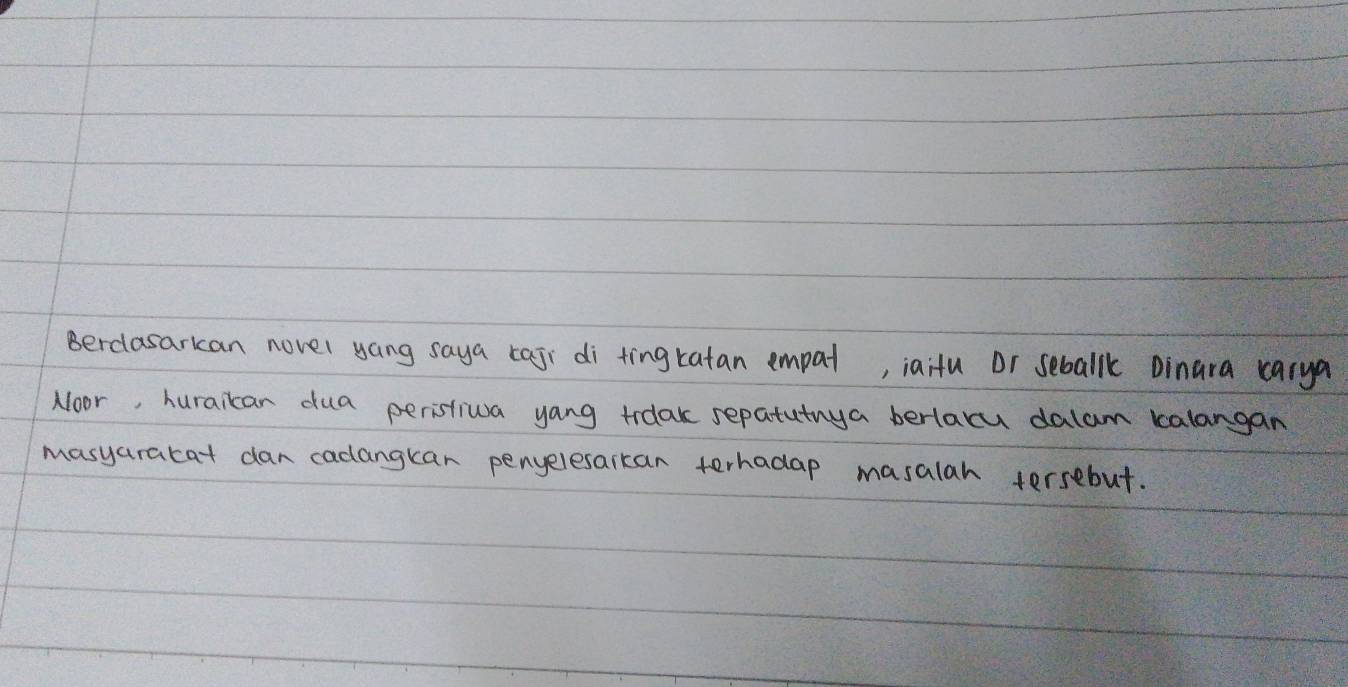 Berdasarkan novel yang saya kaji di tingkatan empat , iaitu Di sebalik Dinara karya
Noor , huraikan dua peristiwa yang tidak sepatutnya berlaku dalam kalangan
masyarakat dan cadangkan penyelesaikan terhadap masalah tersebut.